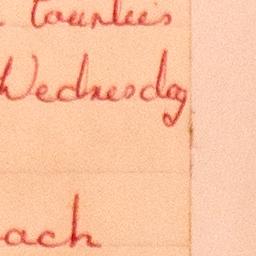 Counties
Wednesday
ach